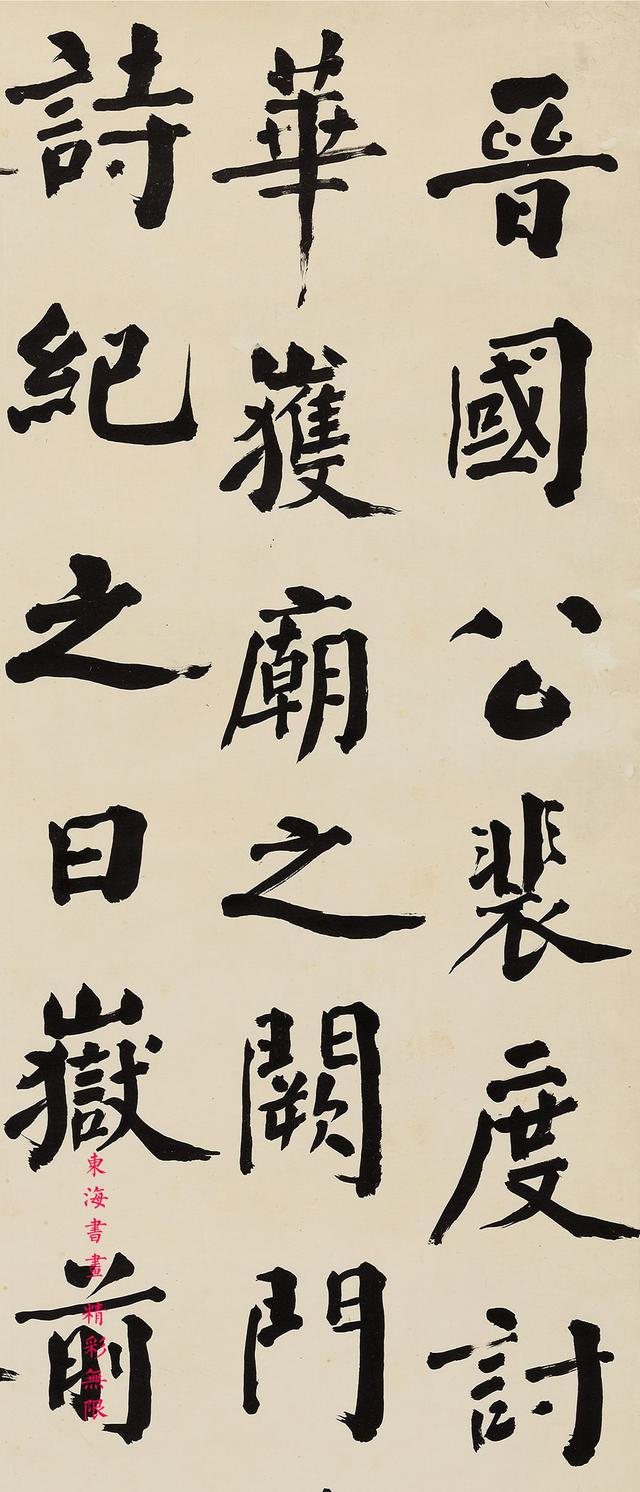 晉國公裴度討
華嶽廟之闕門
詩紀之曰嶽前
東海書畫精彩無限